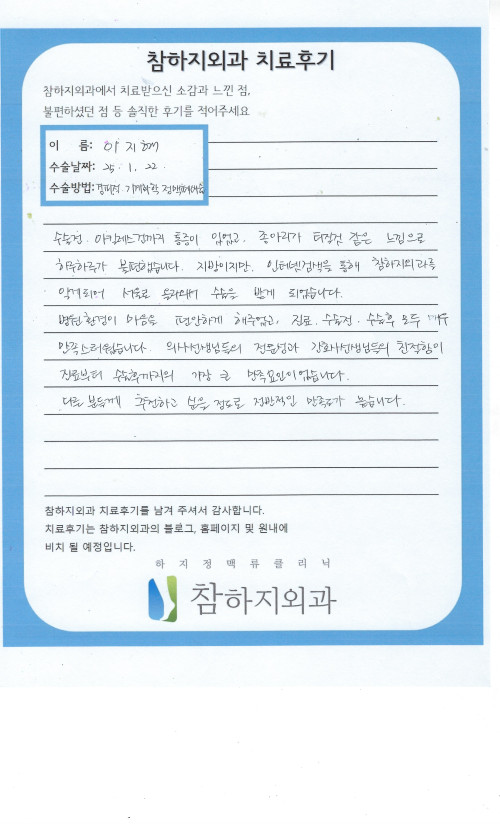 참하지외과 치료후기
참하지외과에서 치료받으신 소감과 느낀 점,
불편하셨던 점 등 솔직한 후기를 적어주세요
이 름: 이지혜
수술날짜: 25. 1. 22.
수술방법: 정맥류. 기계화학 정맥폐쇄술
수술전. 아킬레스건까지 통증이 있었고. 종아리가 터질것 같은 느낌으로
하루하루가 불편했습니다. 지방이지만, 인터넷검색을 통해 참하지외과를
알게되어 서울로 올라와서 수술을 받게 되었습니다.
병원환경이 마음을 편안하게 해주었고, 진료. 수술전. 수술후 모두 매우
만족스러웠습니다. 의사선생님들의 전문성과 간호사선생님들의 친절함이
진료부터 수술후까지의 가장 큰 만족요인이었습니다.
다른 분들께 추천하고 싶을 정도로 전반적인 만족도가 높습니다.
참하지외과 치료후기를 남겨 주셔서 감사합니다.
치료후기는 참하지외과의 블로그, 홈페이지 및 원내에
비치 될 예정입니다.
하지정맥류클리닉
참하지외과